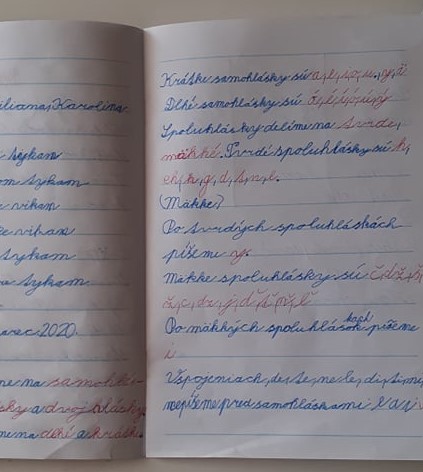 iliana, Karolina
sykam
om sykam
e vikam
e vikam
sykam
sykam
arec 2020
me na samohlá-
sky a dvojhlásky
me na dlhé a krátke.
Krátke samohlásky sú a, e, i, o, u, y, ä
Dlhé samohlásky sú á, é, í, ó, ú, ý
Spoluhlásky delíme na tvrdé,
mäkké. Tvrdé spoluhlásky sú h,
ch, k, g, d, t, n, l.
(Mäkke)
Po tvrdých spoluhláskách
píšeme y.
Mäkke spoluhlásky sú č, dž, š,
ž, c, dz, j, ď, ť, ň, ľ
Po mäkkých spoluhláskach píšeme
i
V spojeniach, de, te, ne, le, di, ti, ni,
nepíšeme pred samohláskami